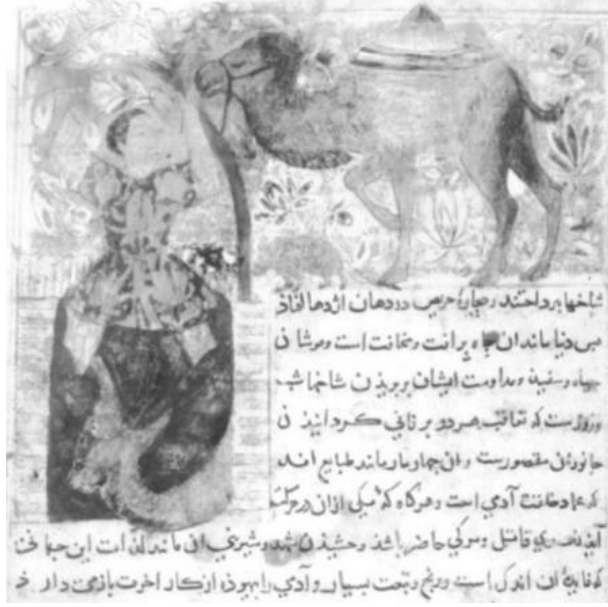 شاخها بپرداختند و بیچاره حریص در دهان اژدها افتاد
دنیا ماند ان چاه پر افت و مخافت است و موشان
سیاه و سفید و مداومت ایشان بر بریدن شاخها شب
و روزست که تعاقب هر دو بر فانی کردانیدن
جانوران مقصورست و ان چهار مار مانند طبایع اند
که عماد خلقت آدمی است و هرکاه که یکی ازان در حرکت
آید زهری قاتل و مرکی حاضر باشد و چشیدن شهد و شیرینی ان مانند لذات این جهانی
که فایدۀ ان اندک است و رنج و تبعت بسیار و آدمی را از کار اخرت بازمی دارد